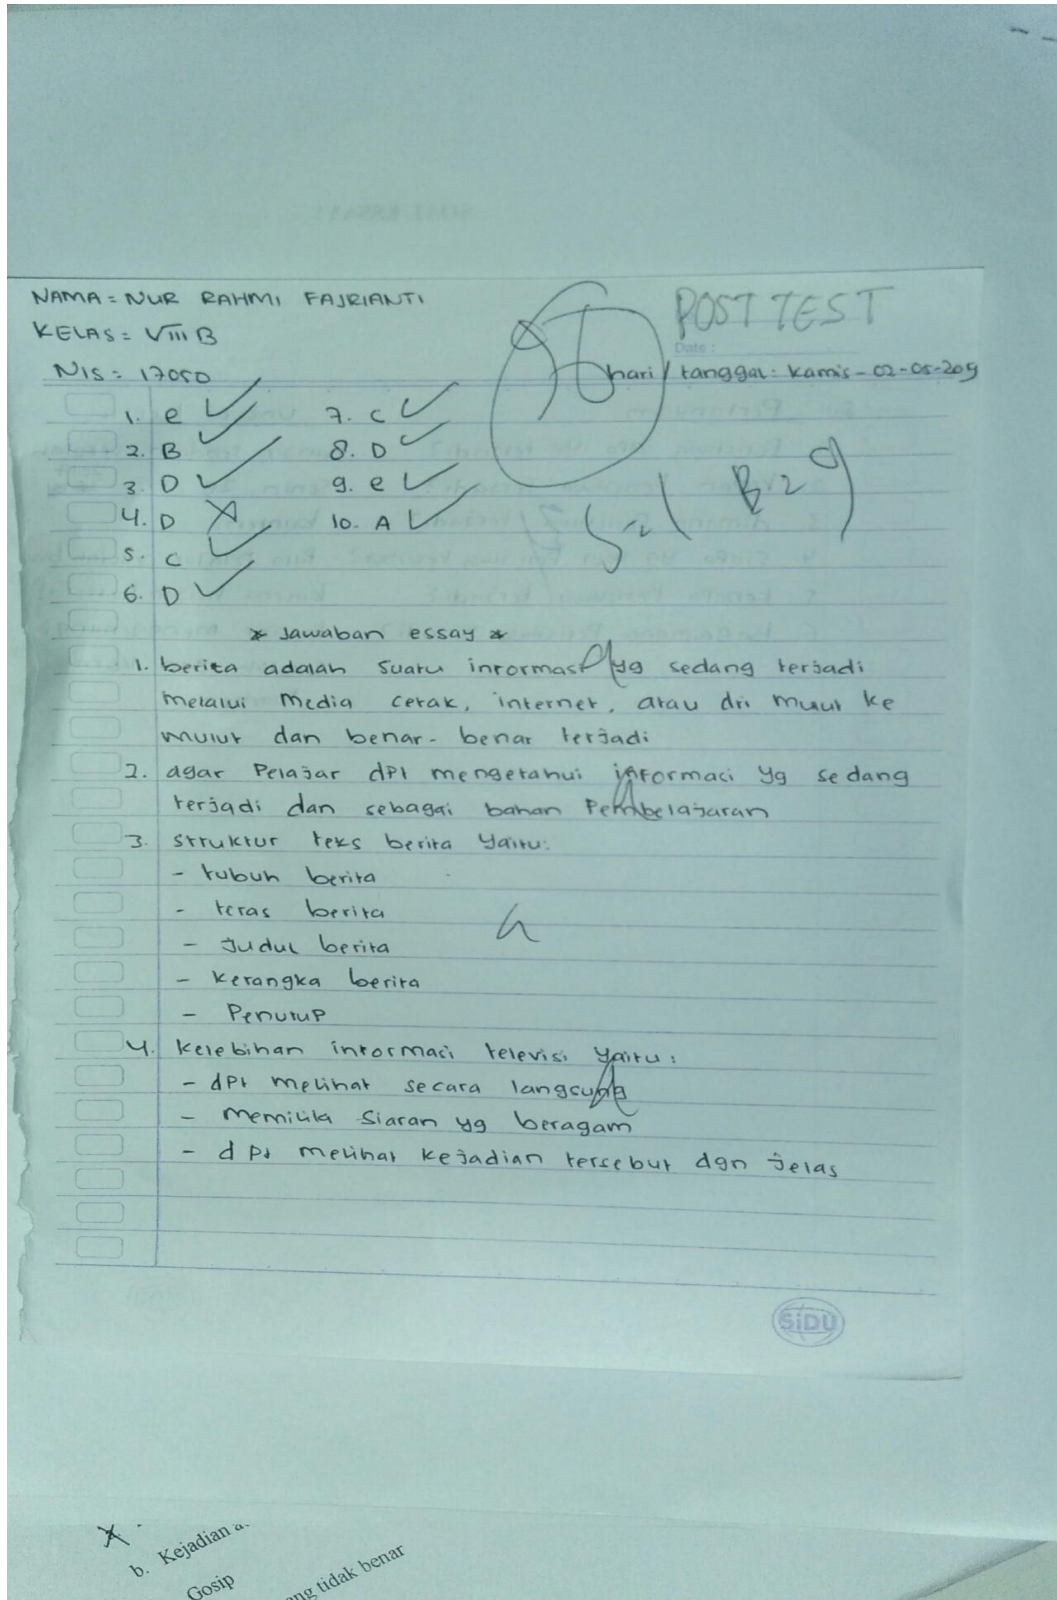 NAMA = NUR RAHMI FAJRIANTI
POST TEST
KELAS = VIII B
Date :
NIS = 17050
hari / tanggal: Kamis - 02-05-2019
1. e 7. C
2. B 8. D
3. D 9. e
4. D 10. A
5. C
6. D
* Jawaban essay *
1. berita adalah suatu informasi yg sedang terjadi
melalui media cetak, internet, atau dri mulut ke
mulut dan benar-benar terjadi
2. agar Pelajar dpt mengetahui informaci yg sedang
terjadi dan sebagai bahan Pembelajaran
3. struktur teks berita yaitu:
- tubuh berita
- teras berita
- Judul berita
- Kerangka berita
- Penutup
4. Kelebihan informaci televisi yaitu:
- dpt melihat secara langsung
- memilila siaran yg beragam
- dpt melihat kejadian tersebut dgn jelas
SiDU
b. Kejadian
Gosip
ng tidak benar